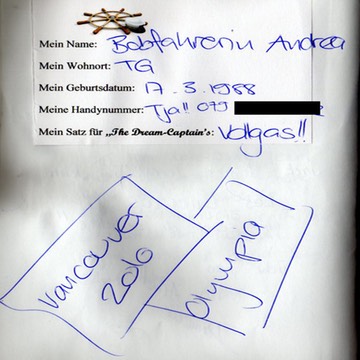 Mein Name: Bobfahrerin Andrea
Mein Wohnort: TG
Mein Geburtsdatum: 17.3.1988
Meine Handynummer: Tja!! 079
Mein Satz für „The Dream-Captain's: Vollgas!!
Vancouver
2010
Olympia